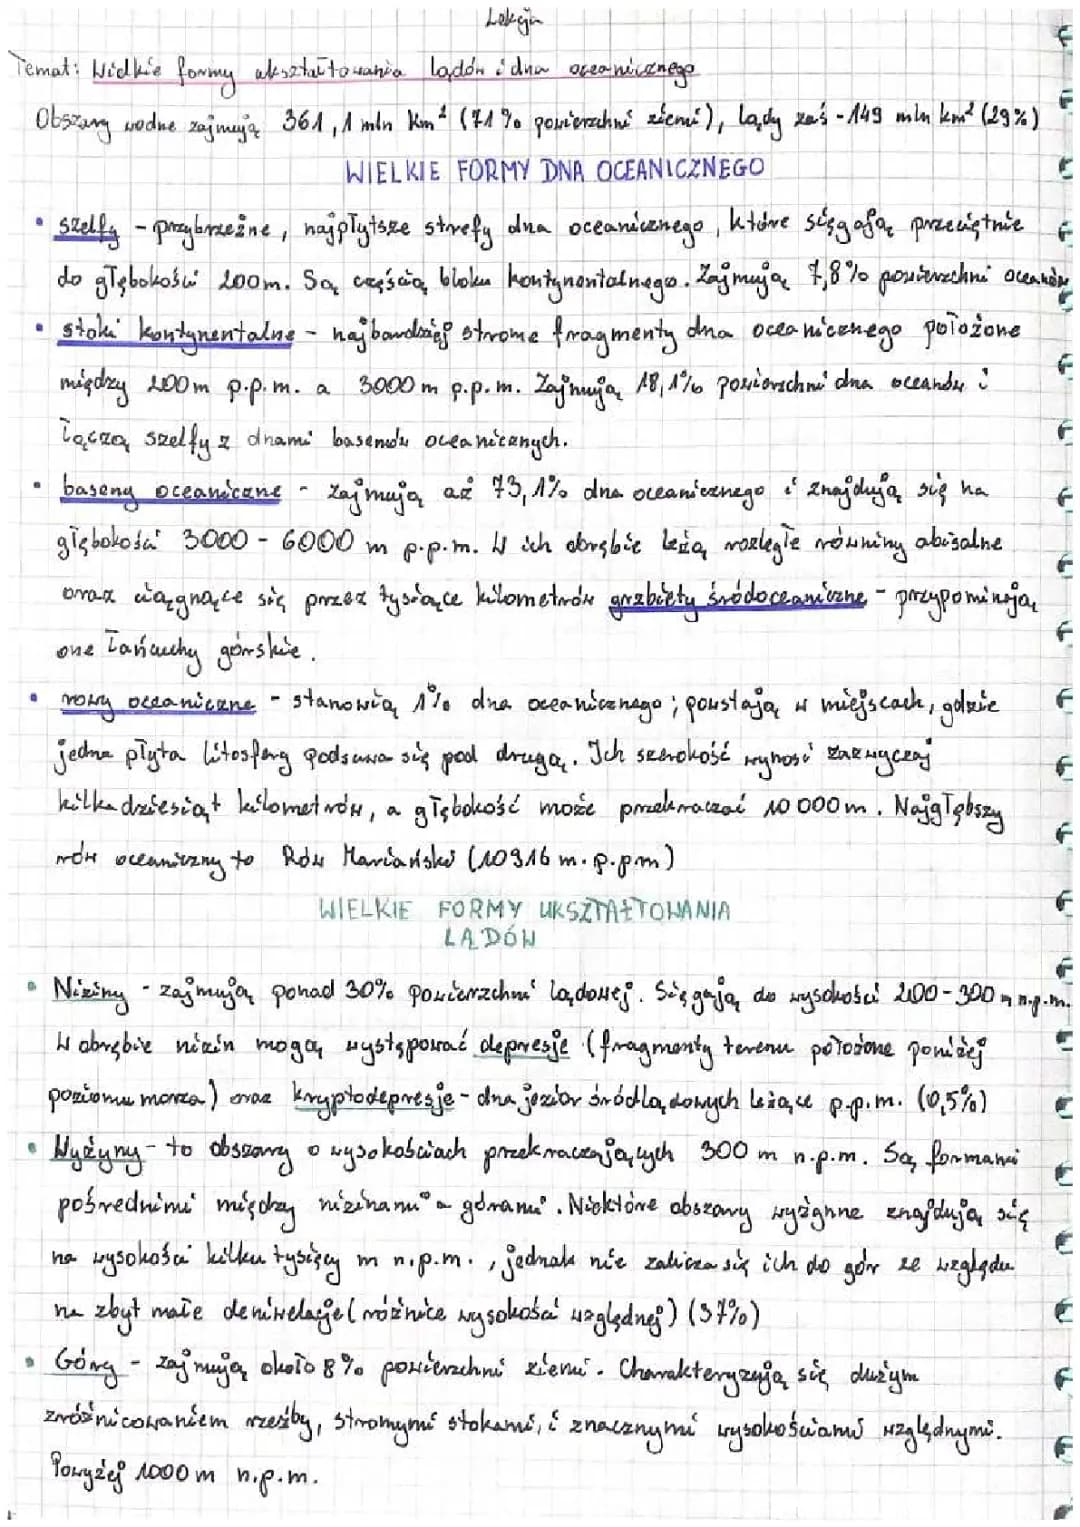 Lekcja
Temat: Wielkie formy ukształtowania lądów i dna oceanicznego
Obszary wodne zajmują 361,1 mln km² (71% powierzchni ziemi), lądy zaś - 149 mln km² (29%)
WIELKIE FORMY DNA OCEANICZNEGO
• szelfy - przybrzeżne, najpłytsze strefy dna oceanicznego, które sięgają przeciętnie
do głębokości 200m. Są częścią bloku kontynentalnego. Zajmują 7,8% powierzchni oceanów
• stoki kontynentalne - najbardziej strome fragmenty dna oceanicznego położone
między 200m p.p.m. a 3000m p.p.m. Zajmują 18,1% powierzchni dna oceanów i
łączą szelfy z dnami basenów oceanicznych.
• baseny oceaniczne - zajmują aż 73,1% dna oceanicznego i znajdują się na
głębokości 3000 - 6000 m p.p.m. W ich obrębie leżą rozległe równiny abisalne
oraz ciągnące się przez tysiące kilometrów grzbiety śródoceaniczne - przypominają
one łańcuchy górskie.
• rowy oceaniczne - stanowią 1% dna oceanicznego; powstają w miejscach, gdzie
jedna płyta litosfery podsuwa się pod drugą. Ich szerokość wynosi zazwyczaj
kilkadziesiąt kilometrów, a głębokość może przekraczać 10 000m. Najgłębszy
rów oceaniczny to Rów Mariański (10916 m. p.p.m)
WIELKIE FORMY UKSZTAŁTOWANIA
LĄDÓW
• Niziny - zajmują ponad 30% powierzchni lądowej. Sięgają do wysokości 200-300 m n.p.m.
W obrębie nizin mogą występować depresje (fragmenty terenu położone poniżej
poziomu morza) oraz kryptodepresje - dna jezior śródlądowych leżące p.p.m. (0,5%)
• Wyżyny - to obszary o wysokościach przekraczających 300 m n.p.m. Są formami
pośrednimi między nizinami a górami. Niektóre obszary wyżynne znajdują się
na wysokości kilku tysięcy m n.p.m., jednak nie zalicza się ich do gór ze względu
na zbyt małe deniwelacje (różnice wysokości względnej) (37%)
• Góry - zajmują około 8% powierzchni ziemi. Charakteryzują się dużym
zróżnicowaniem rzeźby, stromymi stokami, i znacznymi wysokościami względnymi.
Powyżej 1000m n.p.m.